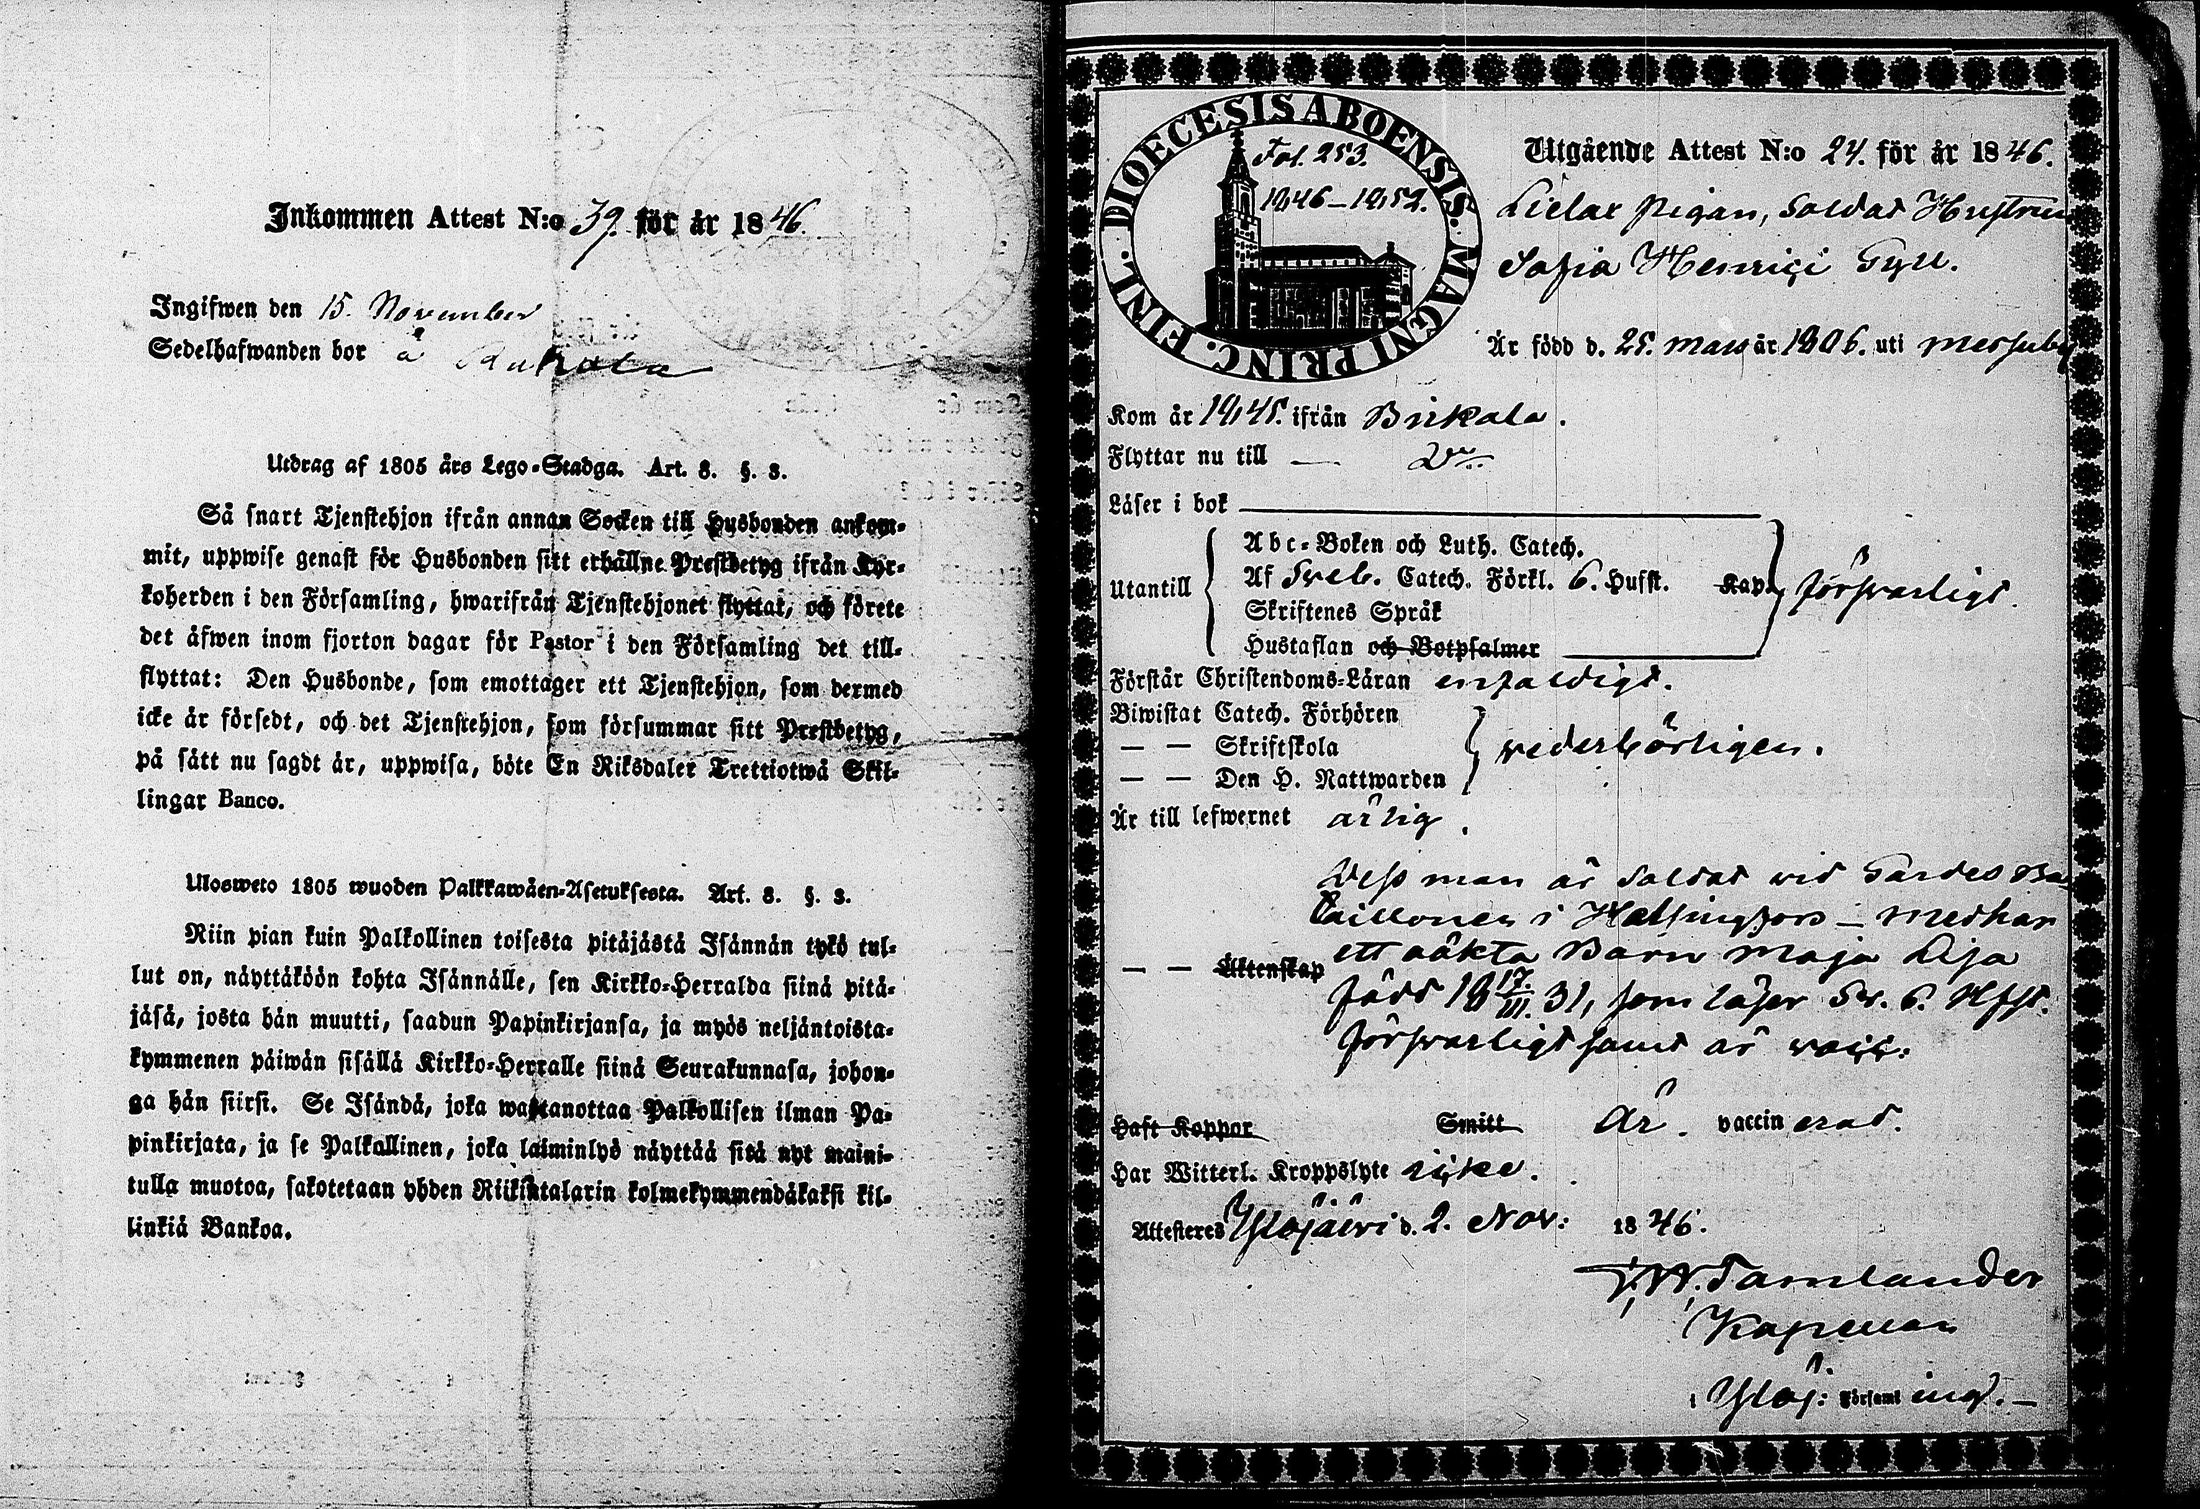 Inkommen Attest N:o 39. för år 1846.
Ingifwen den 15. November
Sedelhafwanden bor å
Utdrag af 1805 års Lego-Stadga. Art. 8. §. 3.
Så snart Tjenstehjon ifrån annan Socken till Husbonden ankom-
mit, uppwise genast för Husbonden sitt erhållne Prestbetyg ifrån Kyr-
koherden i den Församling, hwarifrån Tjenstehjonet flyttat, och förete
det äfwen inom fjorton dagar för Pastor i den Församling det till-
flyttat: Den Husbonde, som emottager ett Tjenstehjon, som dermed
icke är försedt, och det Tjenstehjon, som försummar sitt Prestbetyg,
på sätt nu sagdt är, uppwisa, böte En Riksdaler Trettiotwå Skil-
lingar Banco.
Ulosweto 1805 wuoden Palkkawäen-Asetuksesta. Art. 8. §. 3.
Niin pian kuin Palkollinen toisesta pitäjästä Isännän tykö tul-
lut on, näyttäköön kohta Isännälle, sen Kirkko-Herralda siinä pitä-
jäsä, josta hän muutti, saadun Papinkirjansa, ja myös neljäntoista-
kymmenen päiwän sisällä Kirkko-Herralle siinä Seurakunnasa, johon-
ga hän siirsi. Se Isändä, joka wastanottaa Palkollisen ilman Pa-
pinkirjata, ja se Palkollinen, joka laiminlyö näyttää sitä nyt maini-
tulla muotoa, sakotetaan yhden Riikintalarin kolmekymmendäkaksi kil-
linkiä Bankoa.
DIOECESIS ABOENSIS. MAGNI PRINC. FINL.
Fol. 253.
1846–1852.
Utgående Attest N:o 24. för år 1846.
pigan, Soldat Hustrun
Sofia Henrici Gyll.
Är född d. 25. mars år 1806. uti Messuby
Kom år 1845. ifrån Birkala.
Flyttar nu till —
Läser i bok
Utantill
Abc-Boken och Luth. Catech.
Af Sveb. Catech. Förkl. 6. Hufst. Kap. försvarligt.
Skriftenes Språk
Hustaflan och Botpsalmer
Förstår Christendoms-Läran enfaldigt.
Biwistat Catech. Förhören
— — Skriftskola
— — Den H. Nattwarden
vederbörligen.
Är till lefwernet ärlig.
Dess man är Soldat vid Gardes Ba-
taillonen i Helsingfors — medhar
— — Äktenskap ett oäkta Barn Maja Lisa
född 18 17/III. 31, som läser Sv. 6. Hfst.
försvarligt samt är vacc:
Haft Koppor Smitt Är. vaccinerad.
Har Witterl. Kroppslyte icke.
Attesteres Ylöjärvi d. 2. Nov: 1846.
F. W. Tamlander
Kapellan
i Ylöj: Församling. —